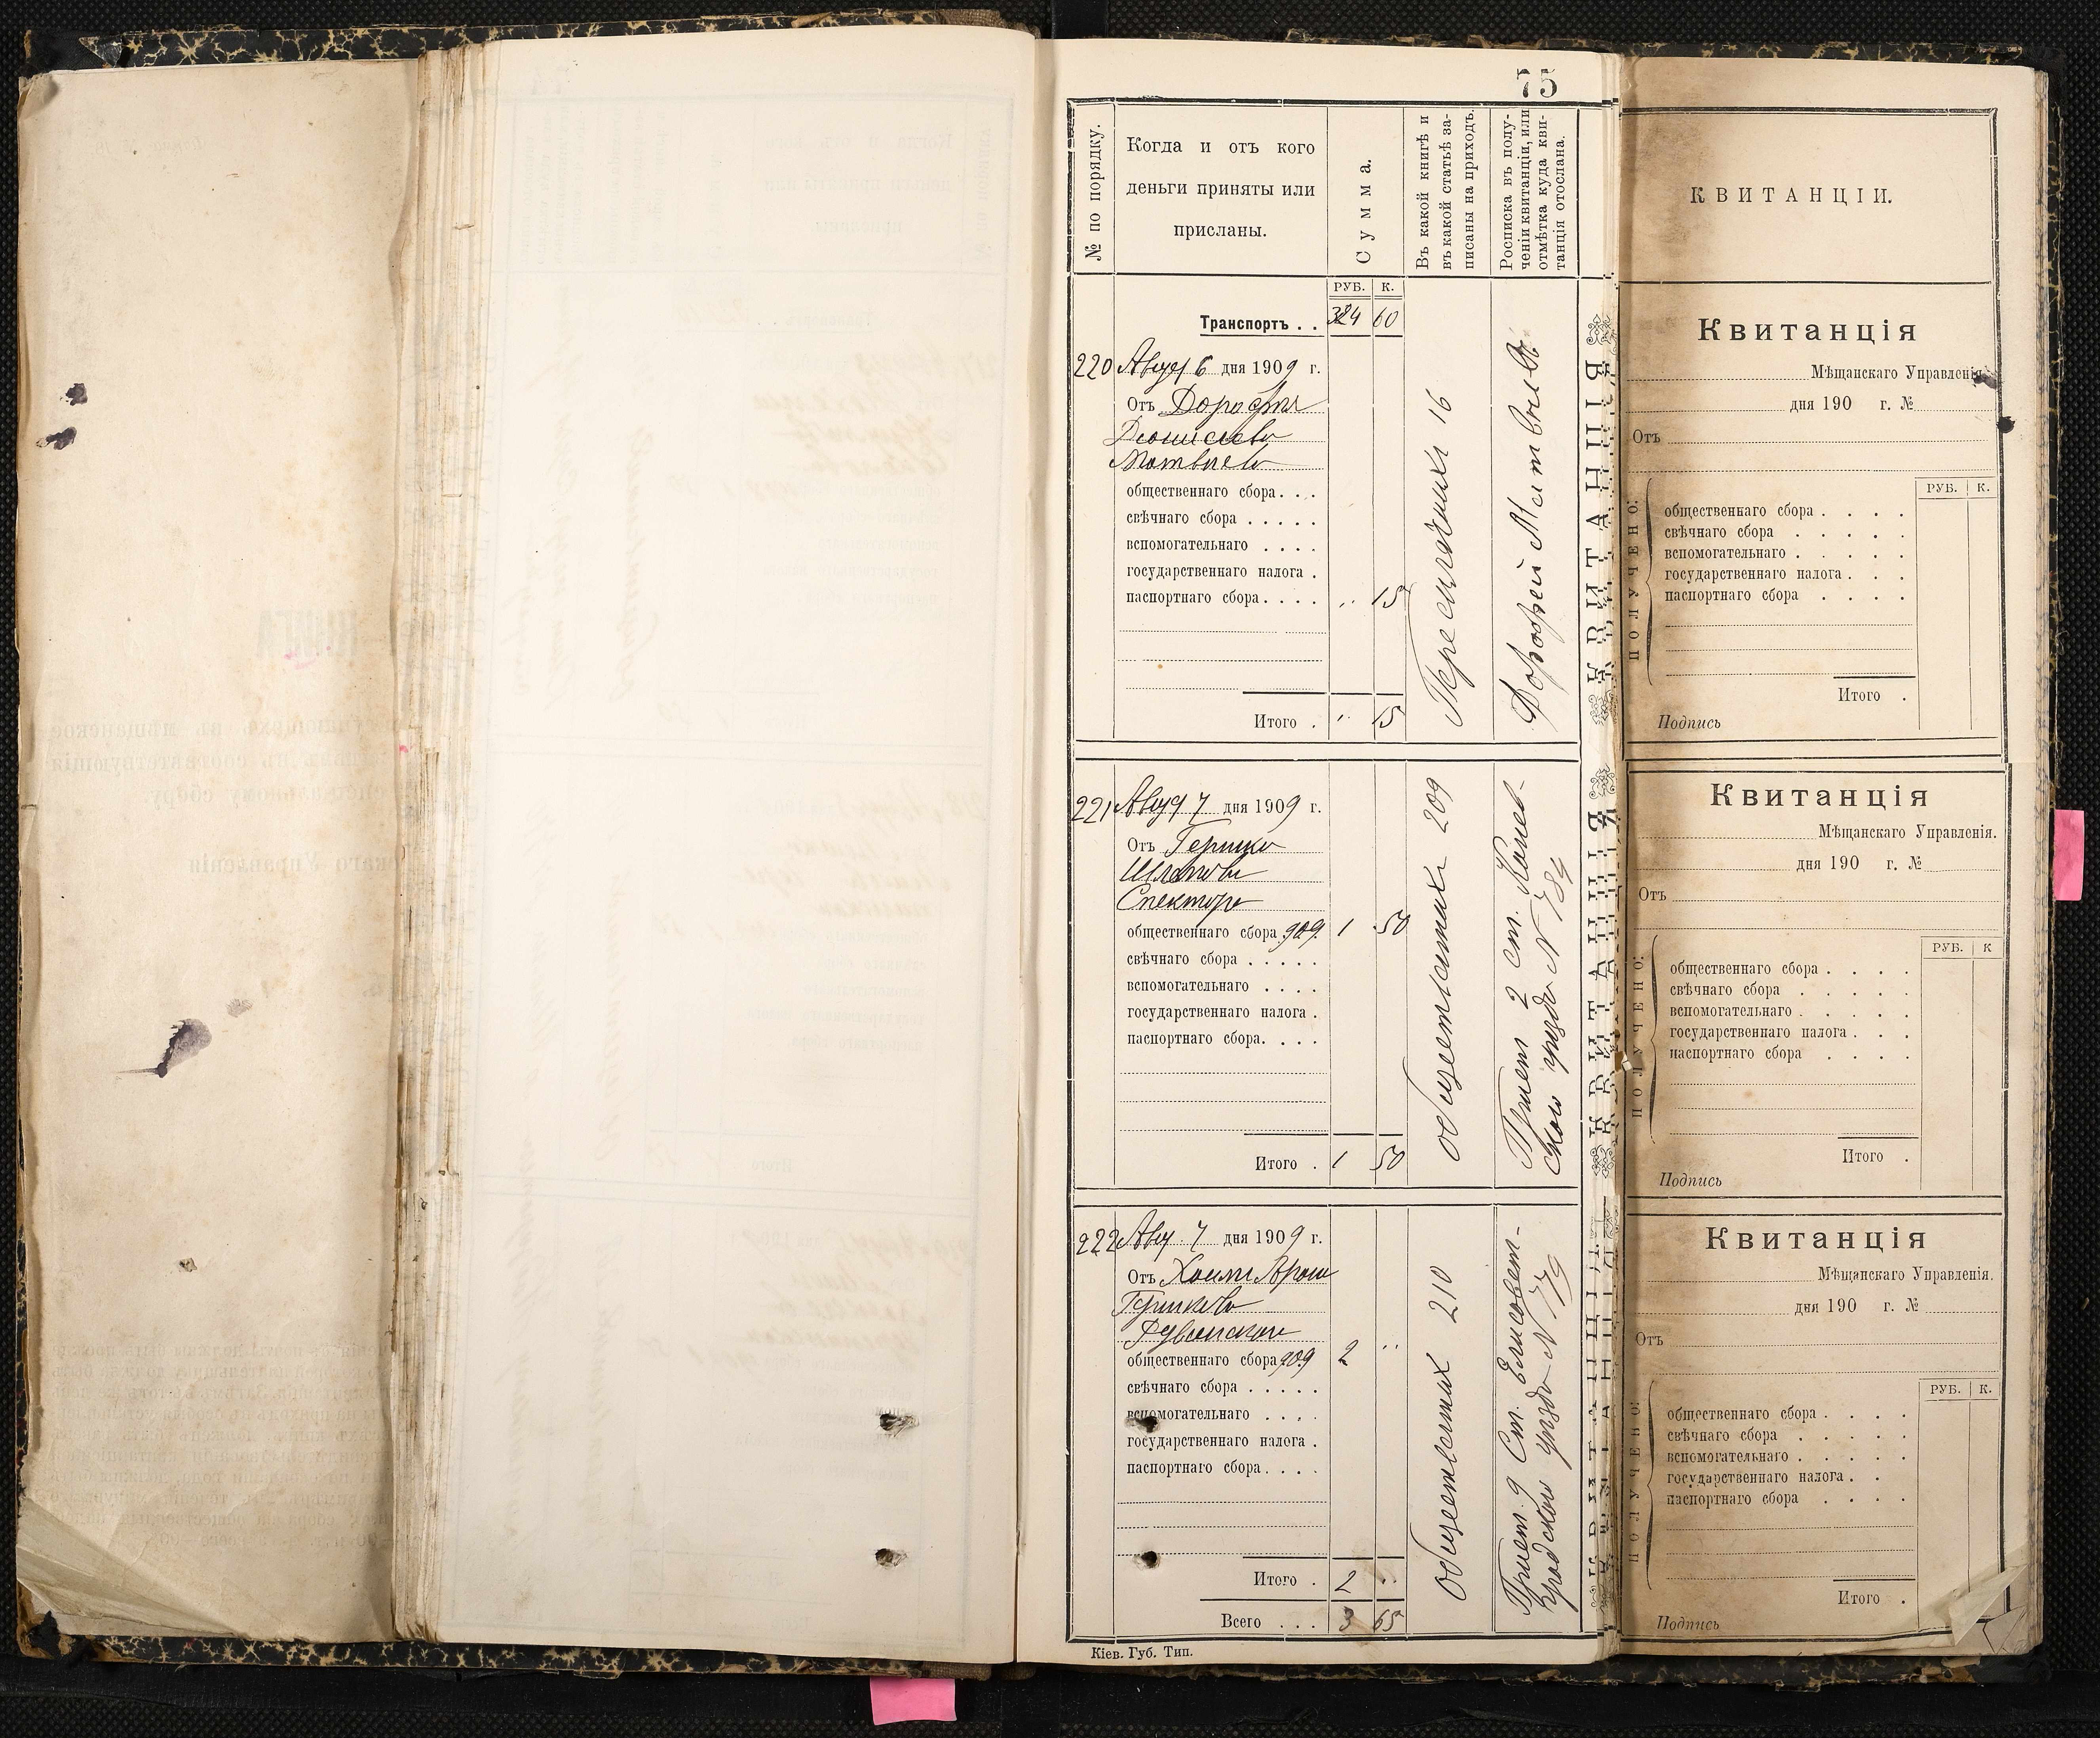 75
№ по порядку.
Когда и отъ кого
деньги приняты или
присланы.
Сумма.
Въ какой книгѣ и
въ какой статьѣ за-
писаны на приходъ.
Росписка въ полу-
ченіи квитанціи, или
отмѣтка куда кви-
танція отослана.
РУБ. К.
Транспортъ . . 324 60
220 Авгус 6 дня 1909 г.
Отъ Дорофея
Дионисіева
Матвѣева
общественнаго сбора . . .
свѣчнаго сбора . . . . .
вспомогательнаго . . . .
государственнаго налога .
паспортнаго сбора . . . . 15
Итого . 15
16
Дорофей Матвѣевъ
221 Август 7 дня 1909 г.
Отъ Гершко
Шлемова
Спектора
общественнаго сбора 909. 1 50
свѣчнаго сбора . . . . .
вспомогательнаго . . . .
государственнаго налога .
паспортнаго сбора . . . .
Итого . 1 50
209
2 ст.
уѣзда N 784
222 Авг. 7 дня 1909 г.
Отъ Хаима Арона
Гершкова
общественнаго сбора 909 2
свѣчнаго сбора . . . . .
вспомогательнаго . . . .
государственнаго налога .
паспортнаго сбора . . . .
Итого . 2
Всего . . . 3 65
210
9 Ст. Елисавет-
градскаго уѣзда N 779
Кіев. Губ. Тип.
КВИТАНЦІЯ
КВИТАНЦІЯ
КВИТАНЦІЯ
КВИТАНЦІИ.
Квитанція
Мѣщанскаго Управленія
дня 190 г. №
Отъ
РУБ. К.
ПОЛУЧЕНО:
общественнаго сбора . . . .
свѣчнаго сбора . . . . .
вспомогательнаго . . . . .
государственнаго налога . . .
паспортнаго сбора . . . .
Итого .
Подпись
Квитанція
Мѣщанскаго Управленія.
дня 190 г. №
Отъ
РУБ. К
ПОЛУЧЕНО:
общественнаго сбора . . . .
свѣчнаго сбора . . . . .
вспомогательнаго . . . . .
государственнаго налога . . .
паспортнаго сбора . . . .
Итого .
Подпись
Квитанція
Мѣщанскаго Управленія.
дня 190 г. №
Отъ
РУБ. К.
ПОЛУЧЕНО:
общественнаго сбора . . . .
свѣчнаго сбора . . . . .
вспомогательнаго . . . . .
государственнаго налога . .
паспортнаго сбора . . . .
Итого .
Подпись